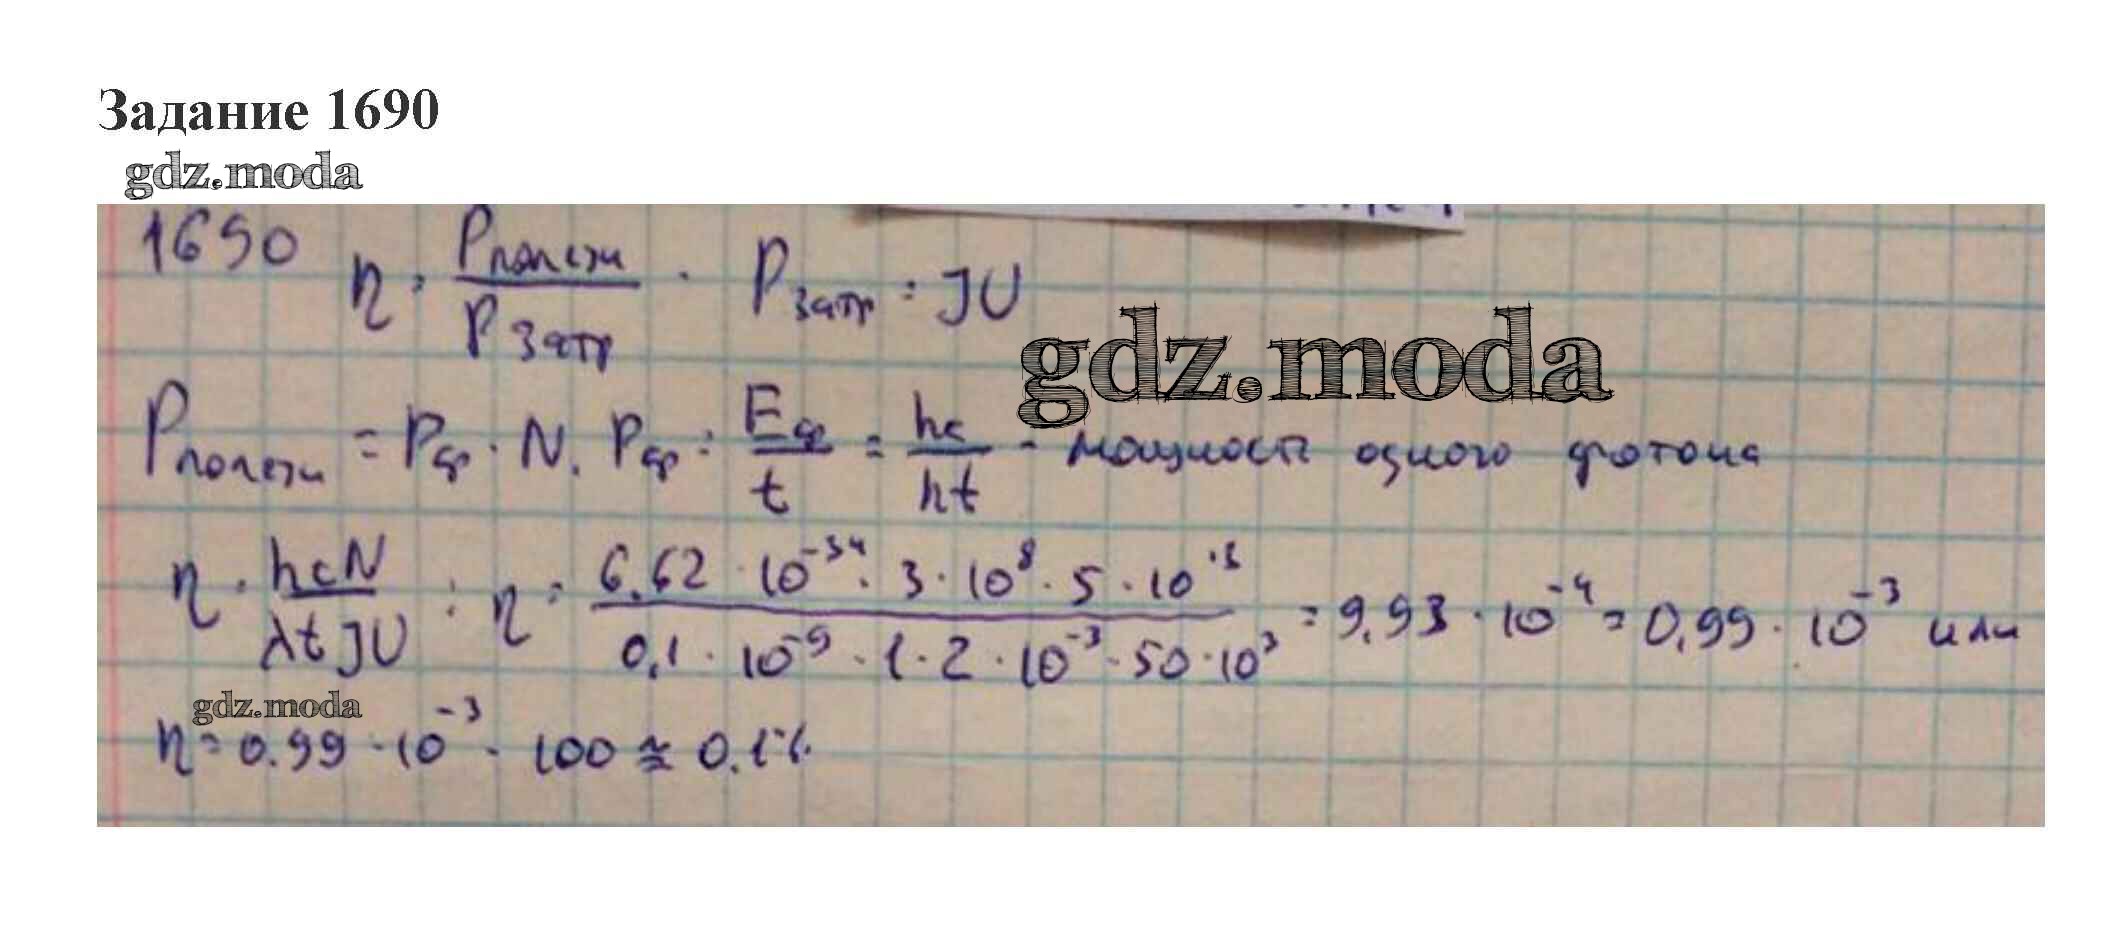 Задание 1690
gdz.moda
1690 η = Pполезн / Pзатр . Pзатр = JU
gdz.moda
Pполезн = Pф · N. Pф = Eф / t = hc / λt - мощность одного фотона
η = hcN / λtJU ; η = 6.62 · 10^-34 · 3 · 10^8 · 5 · 10^13 / 0,1 · 10^-9 · 1 · 2 · 10^-3 · 50 · 10^3 = 9,93 · 10^-4 = 0,99 · 10^-3 или
gdz.moda
η = 0.99 · 10^-3 · 100 ≈ 0.1%